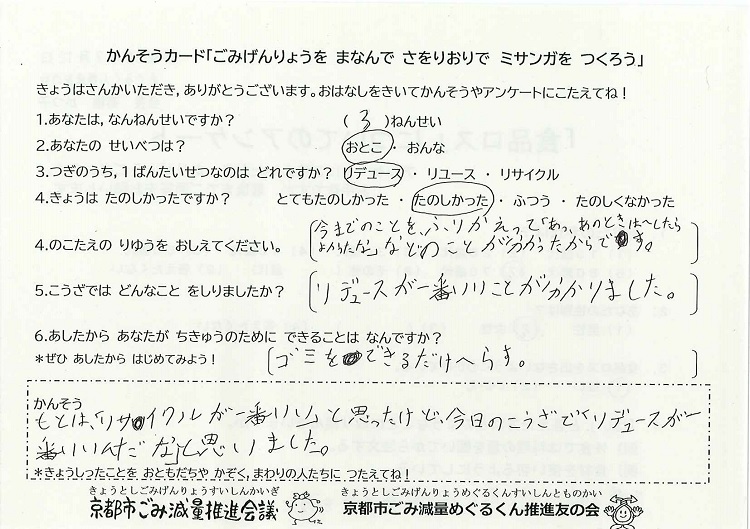 かんそうカード「ごみげんりょうを まなんで さをりおりで ミサンガを つくろう」
きょうはさんかいただき、ありがとうございます。おはなしをきいてかんそうやアンケートにこたえてね！
1.あなたは、なんねんせいですか？ ( 3 )ねんせい
2.あなたの せいべつは？ おとこ ・ おんな
3.つぎのうち、1ばんたいせつなのは どれですか？ リデュース ・ リユース ・ リサイクル
4.きょうは たのしかったですか？ とてもたのしかった ・ たのしかった ・ ふつう ・ たのしくなかった
今までのことを、ふりかえって「あっ、あのときは〜したら
4.のこたえの りゆうを おしえてください。 よかったな」などのことが分かったからです。
5.こうざでは どんなこと をしりましたか？ リデュースが一番いいことが分かりました。
6.あしたから あなたが ちきゅうのために できることは なんですか？
*ぜひ あしたから はじめてみよう！ ゴミをできるだけへらす。
かんそう
もとは、「リサイクルが一番いい」と思ったけど、今日のこうざで「リデュースが一
番いいんだな」と思いました。
*きょうしったことを おともだちや かぞく、まわりの人たちに つたえてね！
きょうとしごみげんりょうすいしんかいぎ きょうとしごみげんりょうめぐるくんすいしんとものかい
京都市ごみ減量推進会議 京都市ごみ減量めぐるくん推進友の会